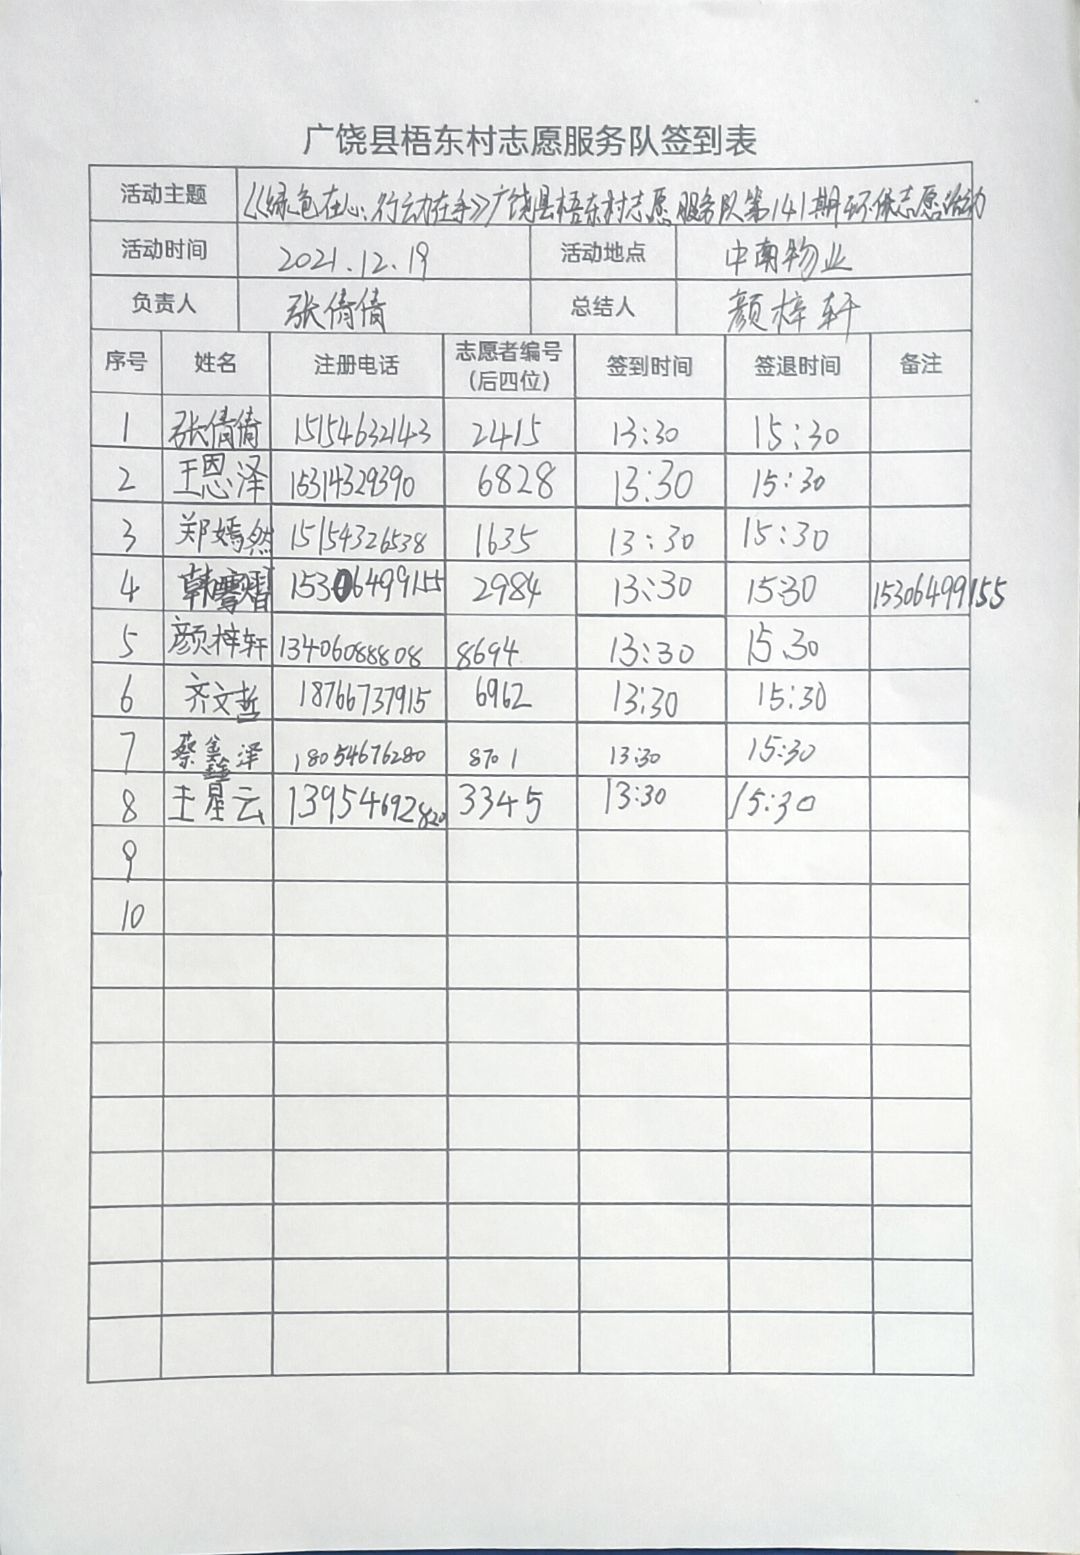 广饶县梧东村志愿服务队签到表
活动主题 《绿色在心.行动在手》广饶县梧东村志愿服务队第141期环保志愿活动
活动时间 2021.12.19 活动地点 中南物业
负责人 张倩倩 总结人 颜梓轩
序号 姓名 注册电话 志愿者编号 签到时间 签退时间 备注
(后四位)
1 张倩倩 15154632143 2415 13:30 15:30
2 王恩泽 15314329390 6828 13:30 15:30
3 郑嫣然 15154326538 1635 13:30 15:30
4 韩雩熠 15306499155 2984 13:30 15:30 15306499155
5 颜梓轩 13406088808 8694 13:30 15.30
6 齐文哲 18766737915 6962 13:30 15:30
7 蔡鑫泽 18054676280 8701 13:30 15:30
8 王星云 13954692820 3345 13:30 15:30
9
10